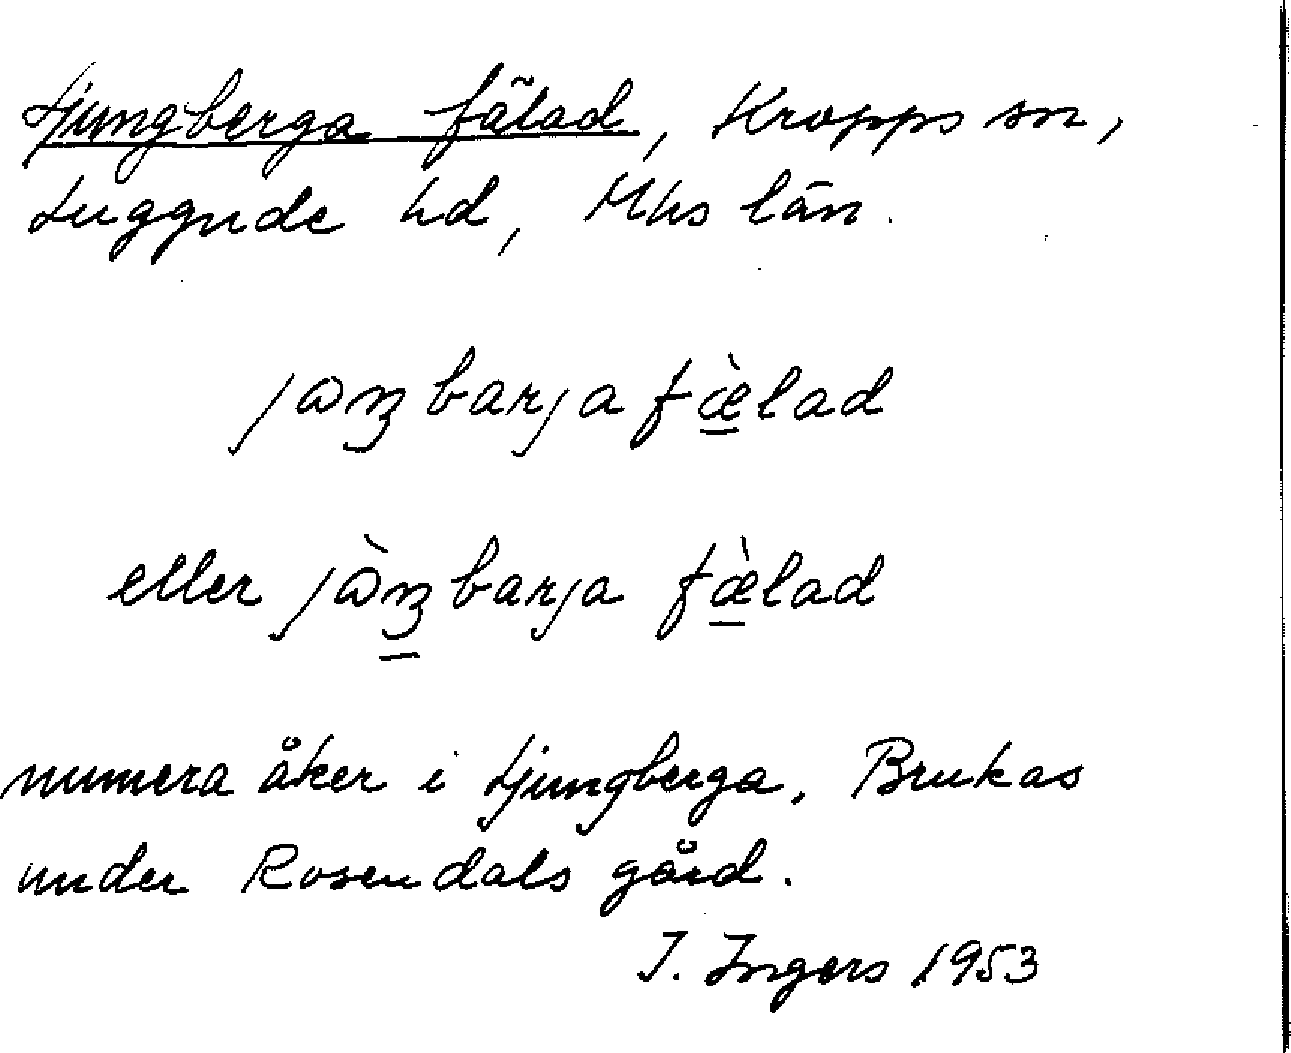 Ljungberga fälad, Kropps sn,
Luggude hd, Mhs län.
jɷꜧbarja fæ̀lad
eller jɷ̀ꜧbarja fæ̀lad
numera åker i Ljungberga. Brukas
under Rosendals gård.
I. Ingers 1953